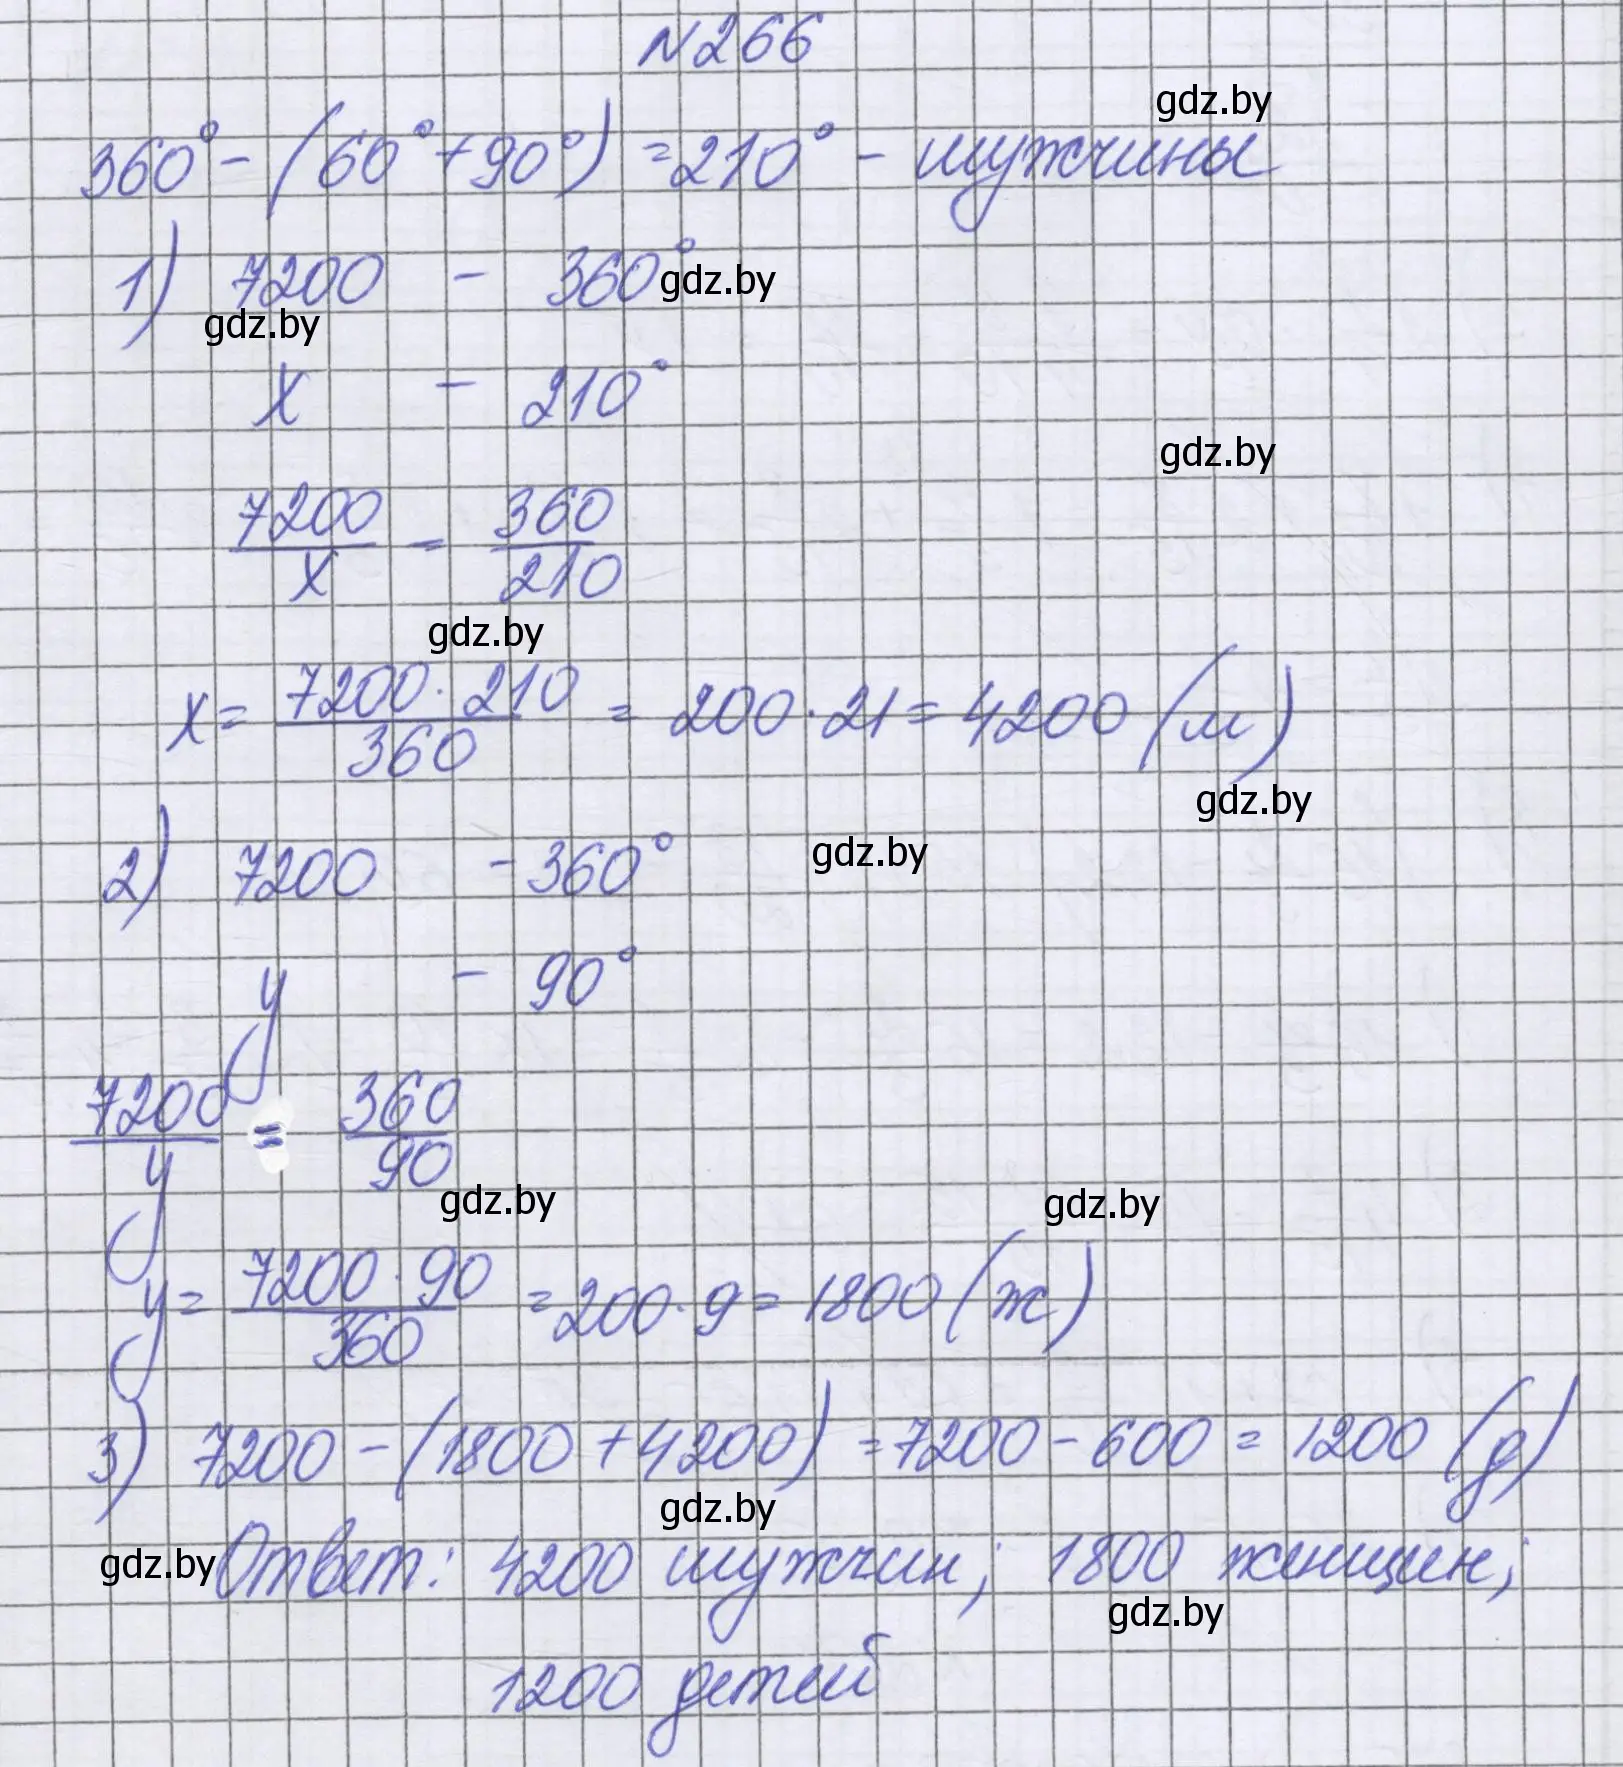 N266
gdz.by
360° - (60° + 90°) = 210° - мужчины
1) 7200 - 360°
gdz.by
gdz.by
x - 210°
gdz.by
7200/x = 360/210
gdz.by
x = 7200 · 210/360 = 200 · 21 = 4200 (м)
gdz.by
2) 7200 - 360°
gdz.by
y - 90°
7200/y = 360/90
gdz.by
gdz.by
y = 7200 · 90/360 = 200 · 9 = 1800 (ж)
3) 7200 - (1800 + 4200) = 7200 - 600 = 1200 (д)
gdz.by
gdz.by
Ответ: 4200 мужчин; 1800 женщин;
gdz.by
1200 детей